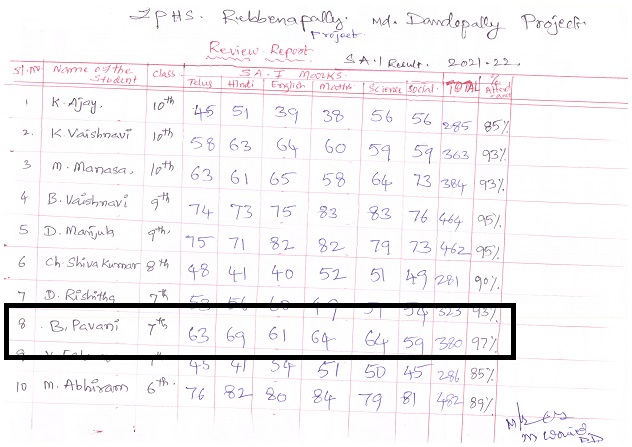 ZPHS. Rebbenapally. Md. Dandepally Project.
Project.
Review Report
S.A.1 Result. 2021-22.
Sl.No Name of the Student Class S.A.I Marks. TOTAL
Telus Hindi English Maths Science Social.
1 K. Ajay. 10th 45 51 39 38 56 56 285 85%
2. K. Vaishnavi 10th 58 63 64 60 59 59 363 93%
3 M. Manasa. 10th 63 61 65 58 64 73 384 93%
4 B. Vaishnavi 9th 74 73 75 83 83 76 464 95%
5 D. Manjula 9th. 75 71 82 82 79 73 462 95%
6 Ch. Shiva Kumar 8th 48 41 40 52 51 49 281 90%
7 D. Rishitha 7th 323 93%
8 B. Pavani 7th 63 69 61 64 64 59 380 97%
9 45 41 54 51 50 45 286 85%
10 M. Abhiram 6th. 76 82 80 84 79 81 482 89%